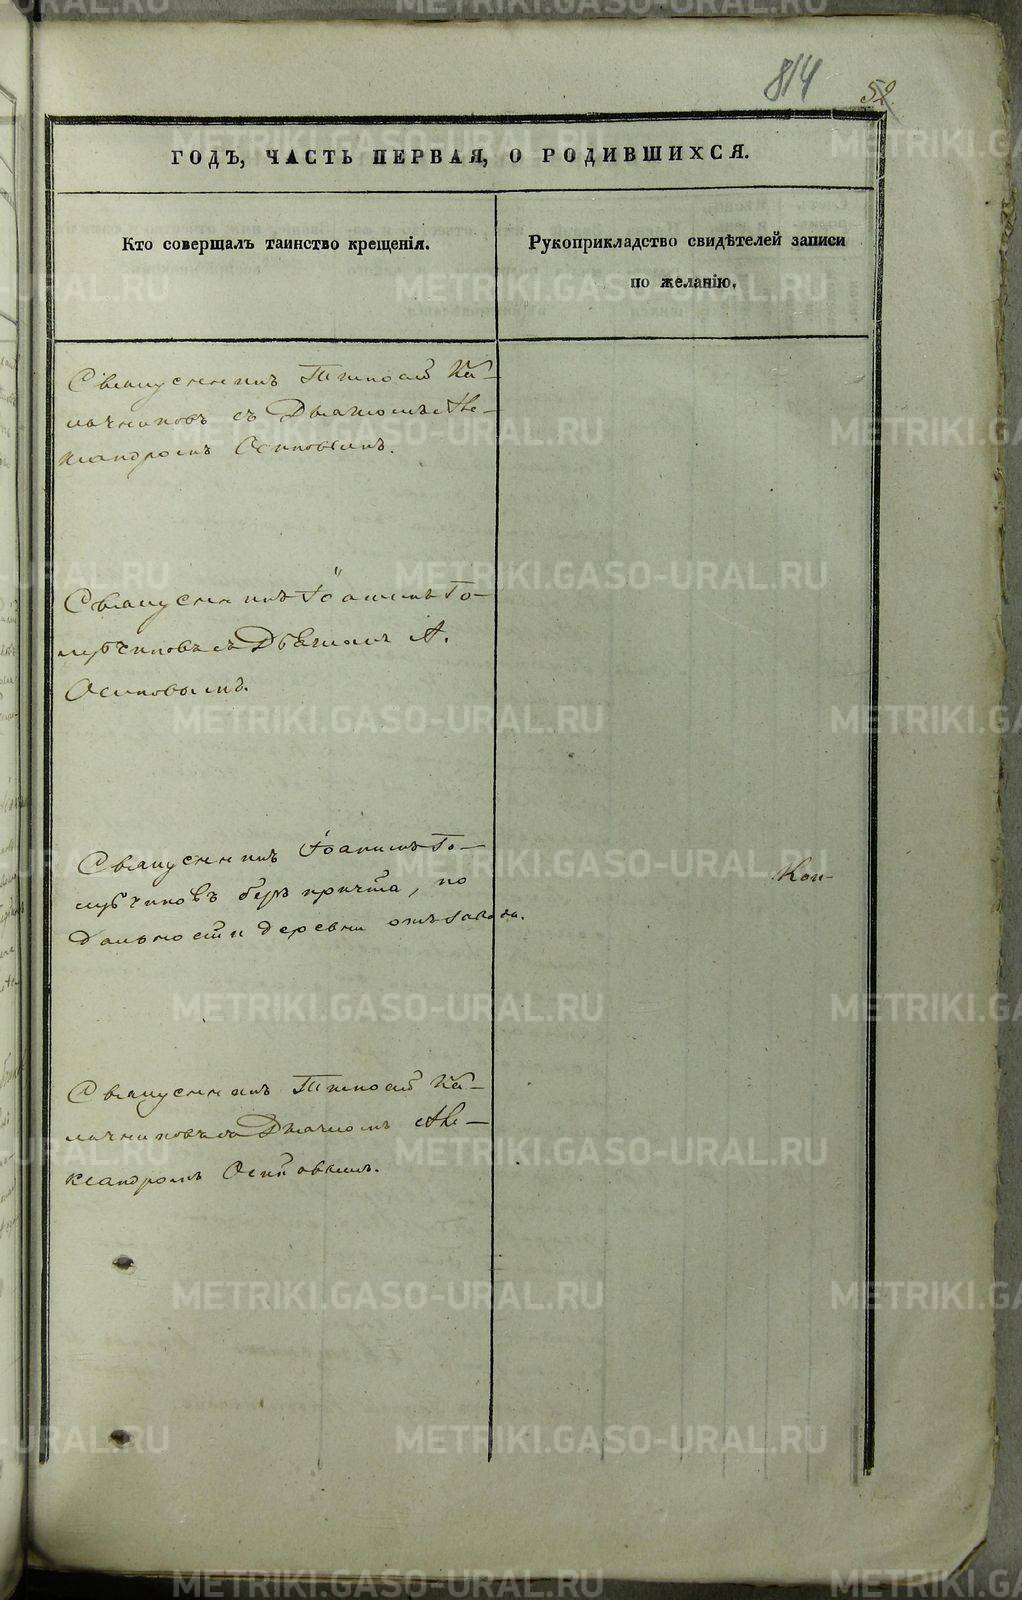 814 52
ГОДЪ, ЧАСТЬ ПЕРВАЯ, О РОДИВШИХСЯ.
Кто совершалъ таинство крещенія.
Рукоприкладство свидѣтелей записи
по желанію.
Священникъ Тимофей Ка-
лачниковъ съ Дьякономъ Але-
ксандромъ Осиповымъ.
Священникъ Іоаннъ Го-
лубчиковъ съ Дьякономъ А.
Осиповымъ.
Священникъ Іоаннъ Го-
лубчиковъ безъ причта, по
дальности деревни отъ завода.
Кол-
Священникъ Тимофей Ка-
лачниковъ съ Дьякономъ Але-
ксандромъ Осиповымъ.
METRIKI.GASO-URAL.RU